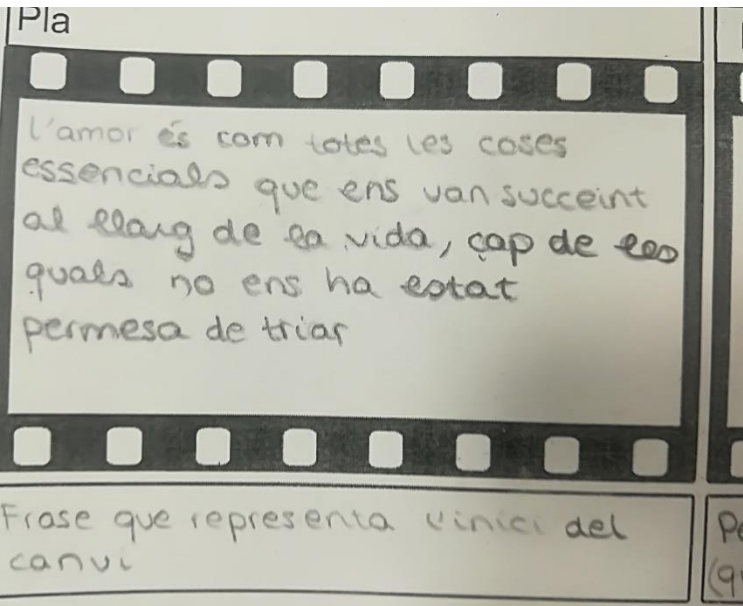 Pla
l'amor és com totes les coses
essencials que ens van succeint
al llarg de la vida, cap de les
quals no ens ha estat
permesa de triar
Frase que representa l'inici del
canvi